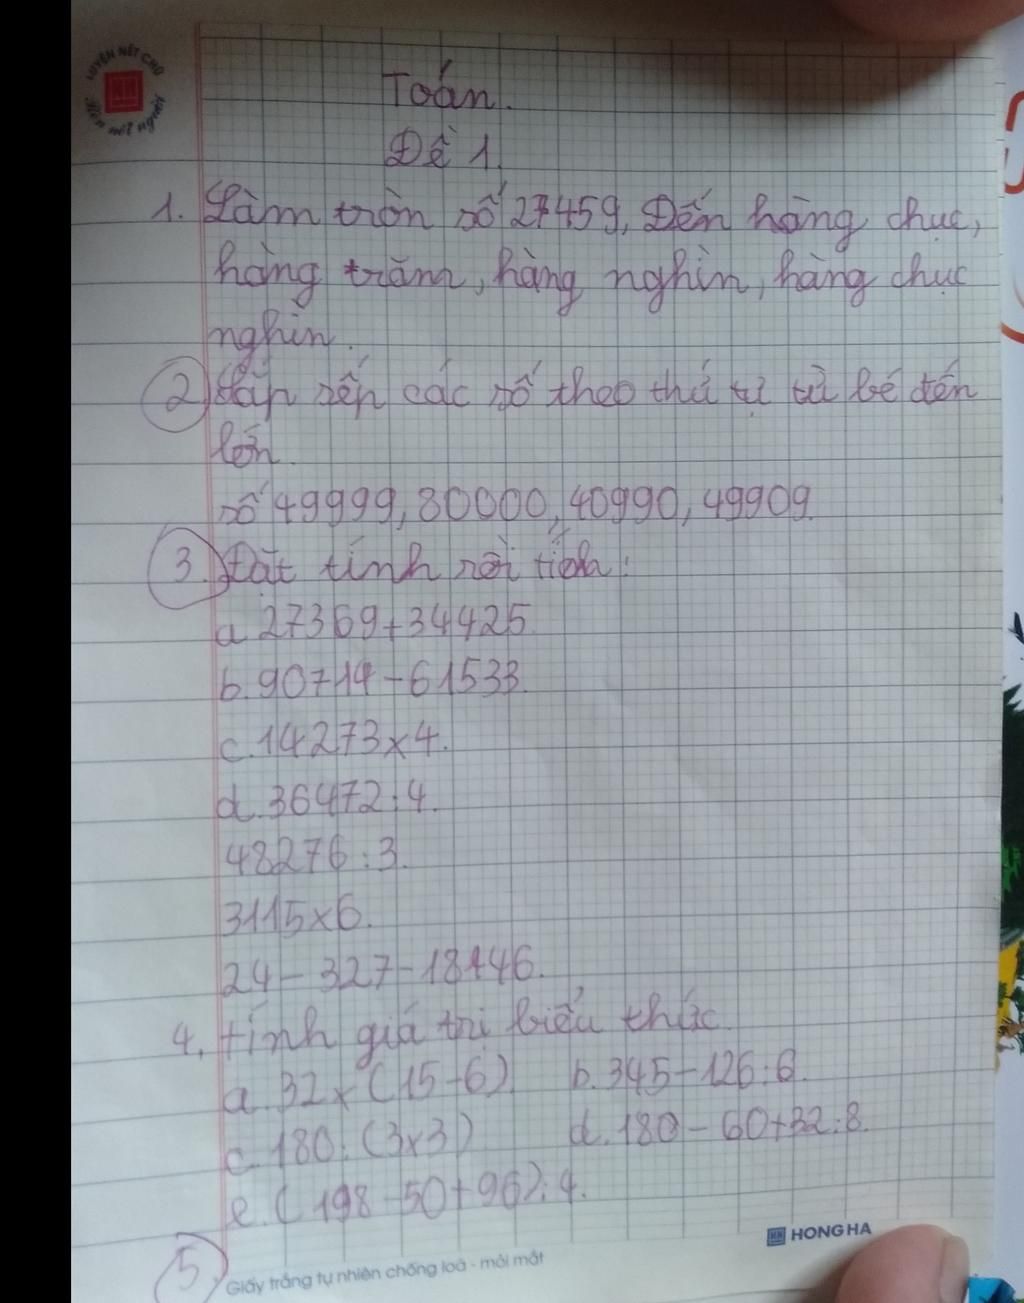 LUYỆN NÉT CHỮ
Rèn nết người
Toán.
Đề 1.
1. Làm tròn số 27459, Đến hàng chục,
hàng trăm, hàng nghìn, hàng chục
nghìn.
2 Sắp xếp các số theo thứ tự từ bé đến
lớn.
số 49999, 80000, 40990, 49909.
3. Đặt tính rồi tính:
a 27369+34425.
b. 90714-61533.
c. 14273x4.
d. 36472:4.
48276:3.
3115x6.
24-327-18446.
4. tính giá trị biểu thức
a. 32x(15-6) b. 345-126:6.
c. 180:(3x3) d. 180-60+32:8.
e. (198-50+96):4.
5.
Giấy trắng tự nhiên chống loá - mỏi mắt
HONG HA